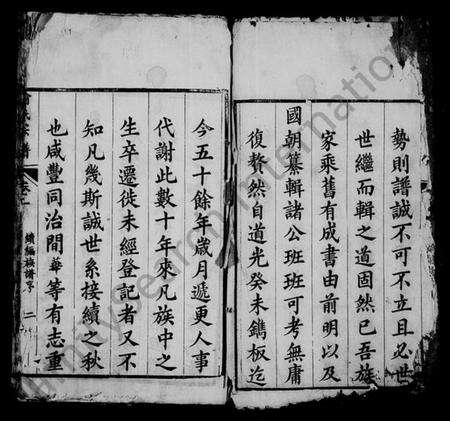 勢則譜誠不可不立且必世
世繼而輯之道固然已吾族
家乘舊有成書由前明以及
國朝纂輯諸公班班可考無庸
復贅然自道光癸未鐫板迄
今五十餘年歲月遞更人事
代謝此數十年來凡族中之
生卒遷徙未經登記者又不
知凡幾斯誠世系接續之秋
也咸豐同治間華等有志重
氏宗譜
卷
續編族譜序
二